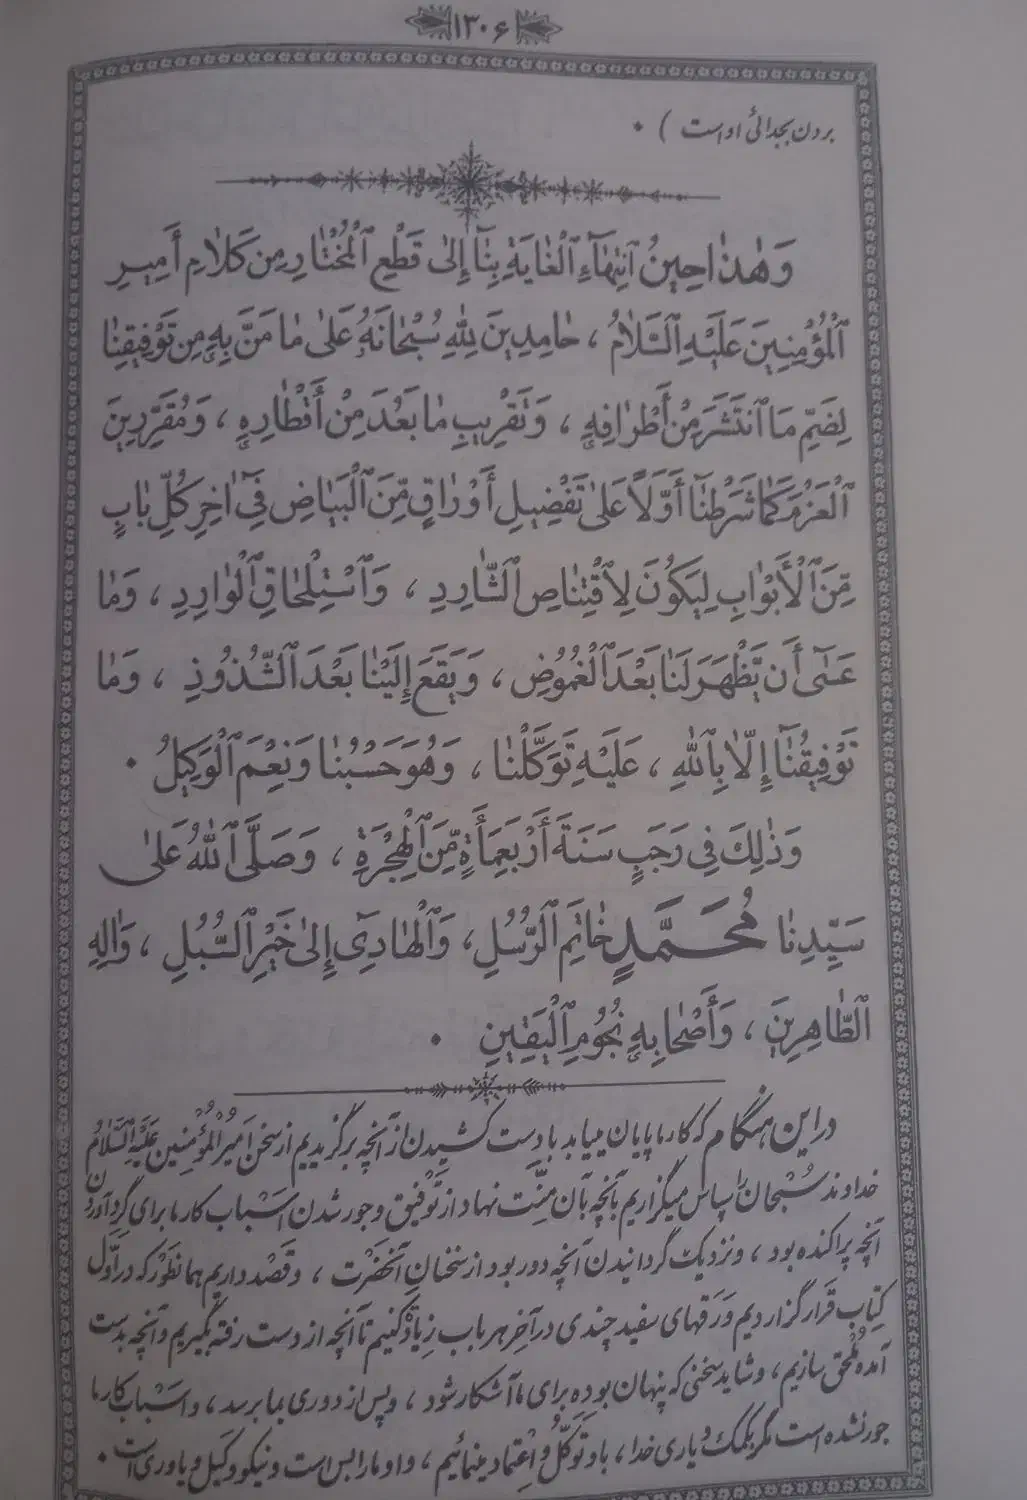 ۱۳۰۶
بردن بجدائی او است ) •
وَهٰذٰا حِينُ ٱنْتِهٰآءِ ٱلْغٰايَةِ بِنٰآ إِلىٰ قَطْعِ ٱلْمُخْتٰارِ مِن كَلٰامِ أَمِيرِ
ٱلْمُؤْمِنِينَ عَلَيْهِ ٱلسَّلٰامُ ، حٰامِدِينَ لِلّٰهِ سُبْحٰانَهُ عَلىٰ مٰا مَنَّ بِهِ مِن تَوْفِيقِنٰا
لِضَمِّ مَا ٱنتَشَرَ مِنْ أَطْرٰافِهِ ، وَتَقْرِيبِ مٰا بَعُدَ مِنْ أَقْطٰارِهِ ، وَمُقَرِّرِينَ
ٱلْعَزْمَ كَمٰا شَرَطْنٰآ أَوَّلًا عَلىٰ تَفْضِيلِ أَوْرٰاقٍ مِّنَ ٱلْبَيٰاضِ فِىٓ اٰخِرِ كُلِّ بٰابٍ
مِّنَ ٱلْأَبْوٰابِ لِيَكُونَ لِاقْتِنٰاصِ ٱلشّٰارِدِ ، وَٱسْتِلْحٰاقِ ٱلْوٰارِدِ ، وَمٰا
عَسٰىٓ أَن يَّظْهَرَ لَنٰا بَعْدَ ٱلْغُمُوضِ ، وَيَقَعَ إِلَيْنٰا بَعْدَ ٱلشُّذُوذِ ، وَمٰا
تَوْفِيقُنٰآ إِلّٰا بِٱللّٰهِ ، عَلَيْهِ تَوَكَّلْنٰا ، وَهُوَ حَسْبُنٰا وَنِعْمَ ٱلْوَكِيلُ •
وَذٰلِكَ فِى رَجَبٍ سَنَةَ أَرْبَعِمَأَةٍ مِّنَ ٱلْهِجْرَةِ ، وَصَلَّى ٱللّٰهُ عَلىٰ
سَيِّدِنٰا مُحَمَّدٍ خٰاتَمِ ٱلرُّسُلِ ، وَٱلْهٰادِىٓ إِلىٰ خَيْرِ ٱلسُّبُلِ ، وَاٰلِهِ
ٱلطّٰاهِرِينَ ، وَأَصْحٰابِهِ نُجُومِ ٱلْيَقِينِ •
در این هنگام که کار ما پایان مییابد با دست کشیدن از آنچه برگزیدیم از سخن اَمیرُالْمُؤْمِنین عَلَیْهِ السَّلامُ
خداوند سُبْحان را سپاس میگزاریم بآنچه بآن مِنَّت نهاد از تَوْفیق و جور شدن اَسْباب کار ما برای گرد آوردن
آنچه پراکنده بود ، و نزدیک گردانیدن آنچه دور بود از سخنان آنحَضْرت ، و قَصْد داریم همانطَوْر که در اَوَّل
کِتاب قَرار گزاردیم وَرَقهای سفید چندی در آخر هر باب زیاد کنیم تا آنچه از دست رفته بگیریم و آنچه بدست
آمده مُلْحَق سازیم ، و شاید سخنی که پنهان بوده برای ما آشکار شود ، و پس از دوری بما برسد ، و اَسْباب کار ما
جور نشده است مگر بکمک و یاری خدا ، باو تَوَکُّل و اِعْتماد مینمائیم ، و او ما را بس است و نیکو وکیل و یاوری است •